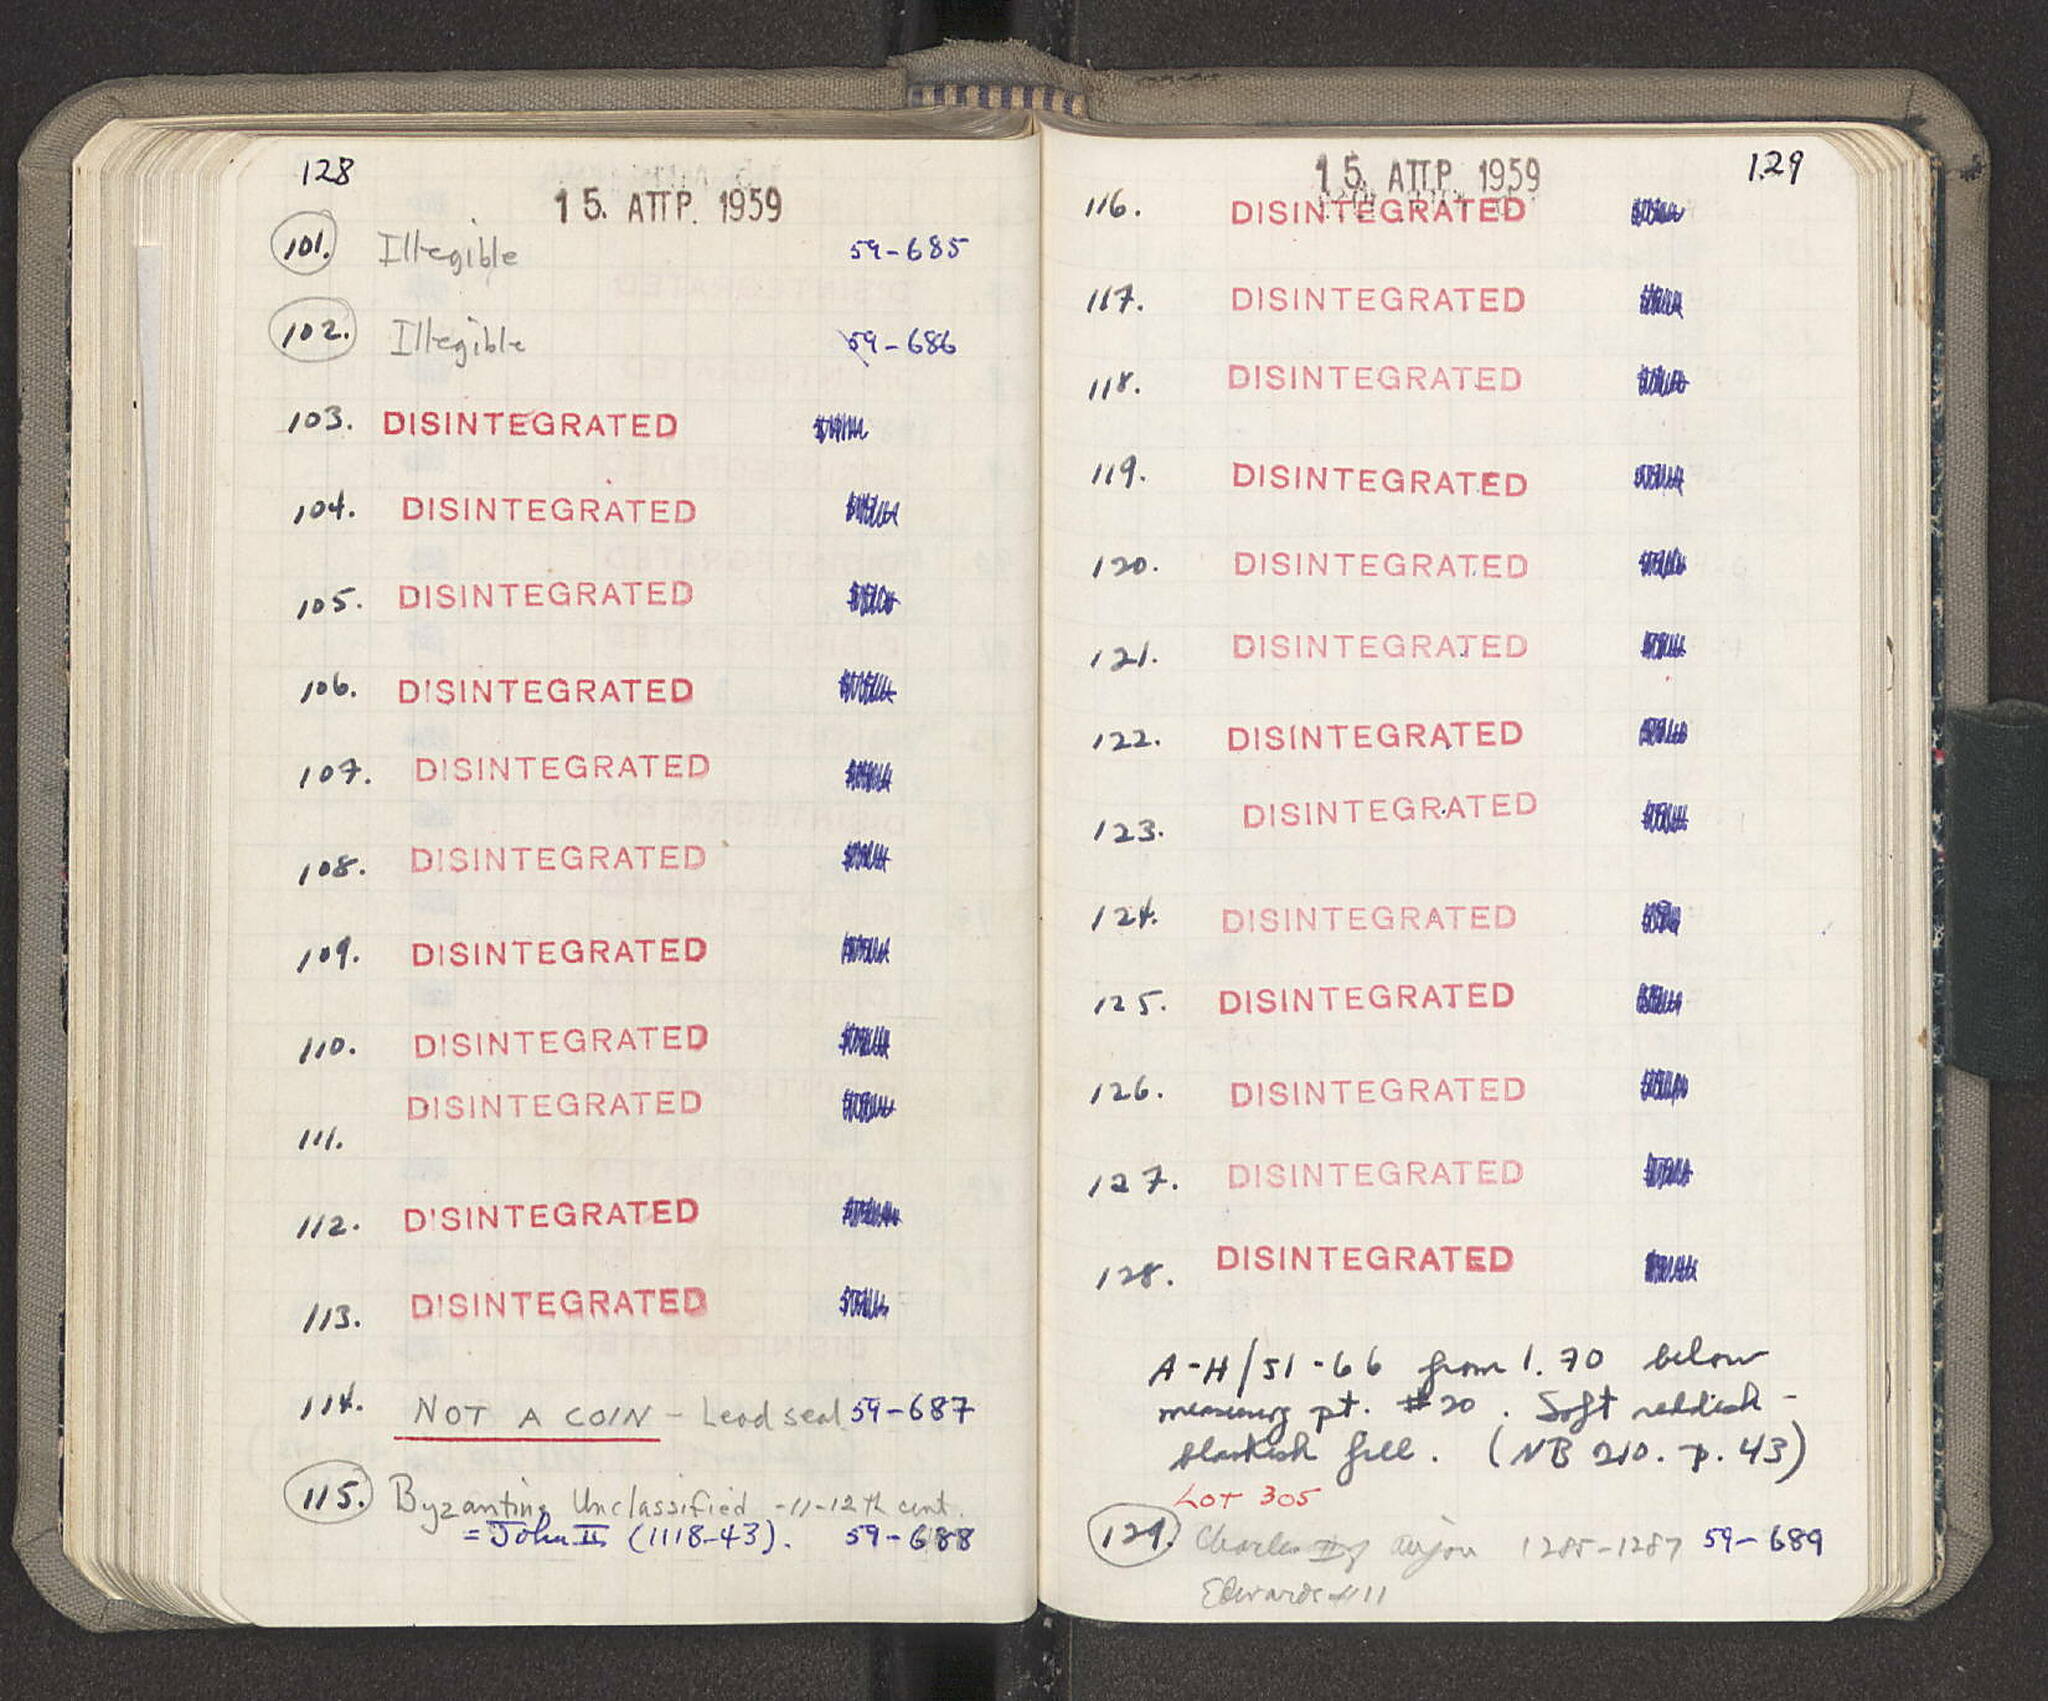 128
15. ΑΠΡ. 1959
101. Illegible 59-685
102. Illegible 59-686
103. DISINTEGRATED
104. DISINTEGRATED
105. DISINTEGRATED
106. DISINTEGRATED
107. DISINTEGRATED
108. DISINTEGRATED
109. DISINTEGRATED
110. DISINTEGRATED
111. DISINTEGRATED
112. DISINTEGRATED
113. DISINTEGRATED
114. NOT A COIN - Lead seal 59-687
115. Byzantine Unclassified -11-12th cent.
= John II (1118-43). 59-688
129
15. ΑΠΡ. 1959
116. DISINTEGRATED
117. DISINTEGRATED
118. DISINTEGRATED
119. DISINTEGRATED
120. DISINTEGRATED
121. DISINTEGRATED
122. DISINTEGRATED
123. DISINTEGRATED
124. DISINTEGRATED
125. DISINTEGRATED
126. DISINTEGRATED
127. DISINTEGRATED
128. DISINTEGRATED
A-H/51-66 from 1.70 below
measuring pt. #20. Soft reddish-
blackish fill. (NB 210. p. 43)
LOT 305
129. Charles II of Anjou 1285-1287 59-689
Edwards #11